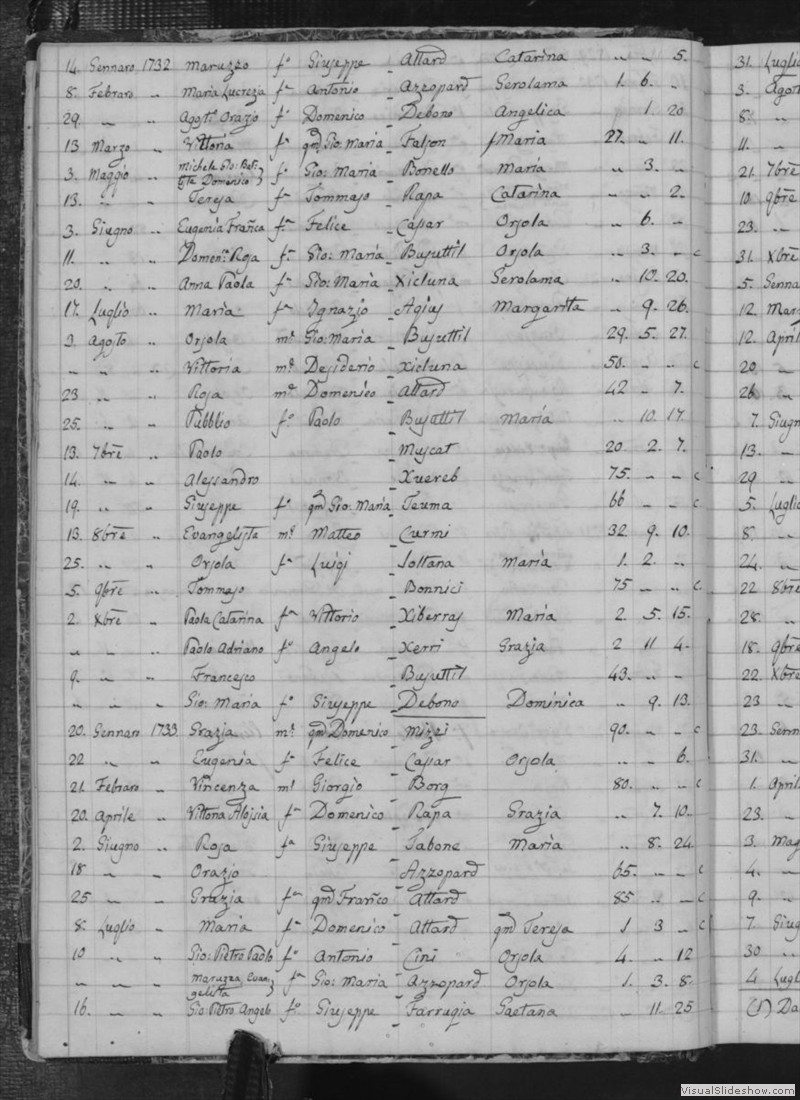 14. Gennaro 1732 Maruzzo fo Giuseppe Attard Catarina .. .. 5.
8. Febraro .. Maria Lucrezia fa Antonio Azzopard Gerolama 1. 6. ..
29. .. .. Agost: Orazio fo Domenico Debono Angelica 1 20
13 Marzo .. Vittoria fa qm Gio: Maria Falzon Maria 27. .. 11.
3. Maggio .. Michele Gio: Batista Domenico fo Gio: Maria Bonello Maria .. 3. ..
13. .. .. Teresa fa Tommaso Rapa Catarina .. .. 2.
3. Giugno .. Eugenia Franca fa Felice Cassar Orsola .. 6. ..
11. .. .. Domenca Rosa fa Gio: Maria Busuttil Orsola .. 3. .. c
20. .. .. Anna Paola fa Gio: Maria Xicluna Gerolama .. 10. 20.
17. Luglio .. Maria fa Ignazio Agius Margarita .. 9. 26.
3. Agosto .. Orsola me Gio: Maria Busuttil 29. 5. 27.
.. .. .. Vittoria me Desiderio Xicluna 50. .. .. c
23 .. .. Rosa me Domenico Attard 42 .. 7.
25. .. .. Pubblio fo Paolo Busuttil Maria .. 10. 17.
13. 7bre .. Paolo Muscat 20. 2. 7.
14. .. .. Alessandro Xuereb 75. .. .. c
19. .. .. Giuseppe fo qm Gio: Maria Teuma 66 .. .. c
13. 8bre .. Evangelista me Matteo Curmi 32. 9. 10.
25. .. .. Orsola fa Luigi Soltana Maria 1. 2. ..
5. 9bre .. Tommaso Bonnici 75 .. .. c
2. Xbre .. Paola Catarina fa Vittorio Xiberras Maria 2. 5. 15.
.. .. .. Paolo Adriano fo Angelo Xerri Grazia 2 11 4.
9. .. .. Francesco Busuttil 43. .. ..
.. .. .. Gio: Maria fo Giuseppe Debono Dominica .. 9. 13.
20. Gennaro 1733 Grazia me qm Domenico Mizzi 90. .. .. c
22 .. .. Eugenia fa Felice Cassar Orsola .. .. 6.
21. Febraro .. Vincenza me Giorgio Borg 80. .. .. c
20. Aprile .. Vittoria Aloisia fa Domenico Rapa Grazia .. 7. 10.
2. Giugno .. Rosa fa Giuseppe Tabone Maria .. 8. 24.
18 .. .. Orazio Azzopard 65. .. .. c
25 .. .. Grazia fa qm Franco Attard 85 .. .. c
8. Luglio .. Maria fa Domenico Attard qm Teresa 1 3 .. c
10 .. .. Gio: Pietro Paolo fo Antonio Cini Orsola 4. .. 12
.. .. .. Maruzza Evangelista fa Gio: Maria Azzopard Orsola 1. 3. 8.
16. .. .. Gio: Pietro Angelo fo Giuseppe Farrugia Gaetana .. 11. 25
31. Luglio
3. Agost
8. ..
11. ..
21. 7bre
10. 9bre
23. ..
31. Xbre
5. Genna
12. Mar
12. April
20 ..
26 ..
7. Giugn
13. ..
29 ..
5. Luglio
8. ..
24. ..
22 8bre
28. ..
18. 9bre
22. Xbre
23 ..
23. Genn
31. ..
1. April
23. ..
3. Mag
4. ..
9. ..
7. Giug
30 ..
4. Lugl
(1) Da
VisualSlideshow.com